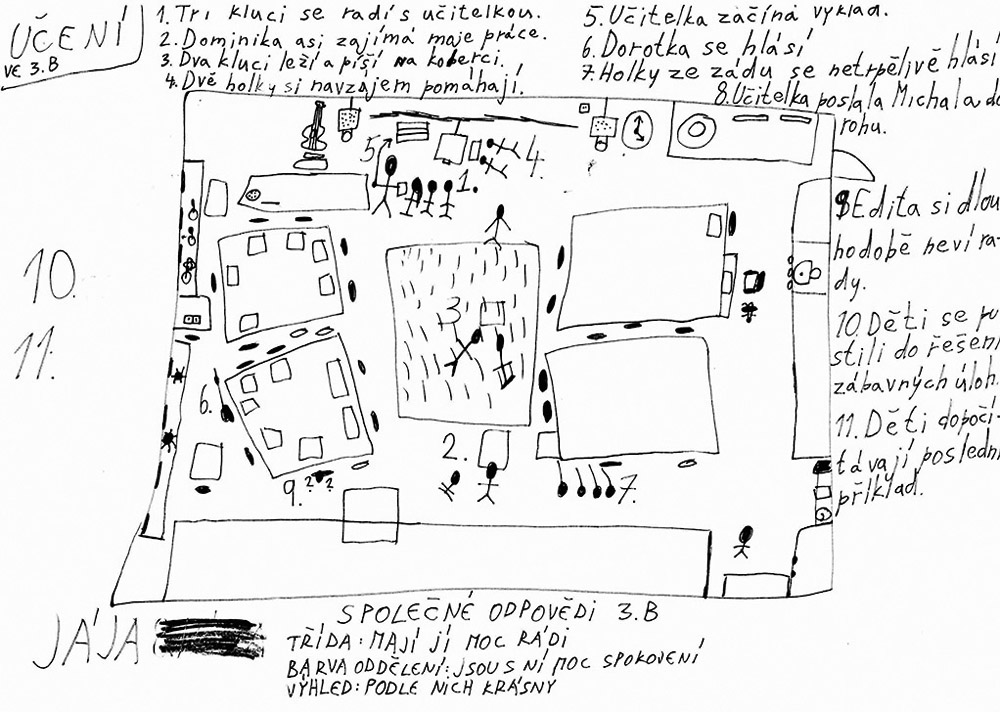 UČENÍ
VE 3.B
1. Tři kluci se radí s učitelkou.
2. Dominika asi zajímá maje práce.
3. Dva kluci leží a píší na koberci.
4. Dvě holky si navzájem pomáhají.
5. Učitelka začíná vyklad.
6. Dorotka se hlásí
7. Holky ze zádu se netrpělivě hlásí
8. Učitelka poslala Michala do
rohu.
9 Edita si dlou
hodobě neví ra-
dy.
10. Děti se pu
stili do řešení
zábavných úloh.
11. Děti dopočí-
távají poslední
příklad.
10.
11.
5
1.
4.
3
6.
2.
7.
9. ? ? ?
JÁJA
SPOLEČNÉ ODPOVĚDI 3.B
TŘÍDA: MAJÍ JÍ MOC RÁDI
BARVA ODDĚLENÍ: JSOU S NÍ MOC SPOKOVENÍ
VÝHLED: PODLE NICH KRÁSNY